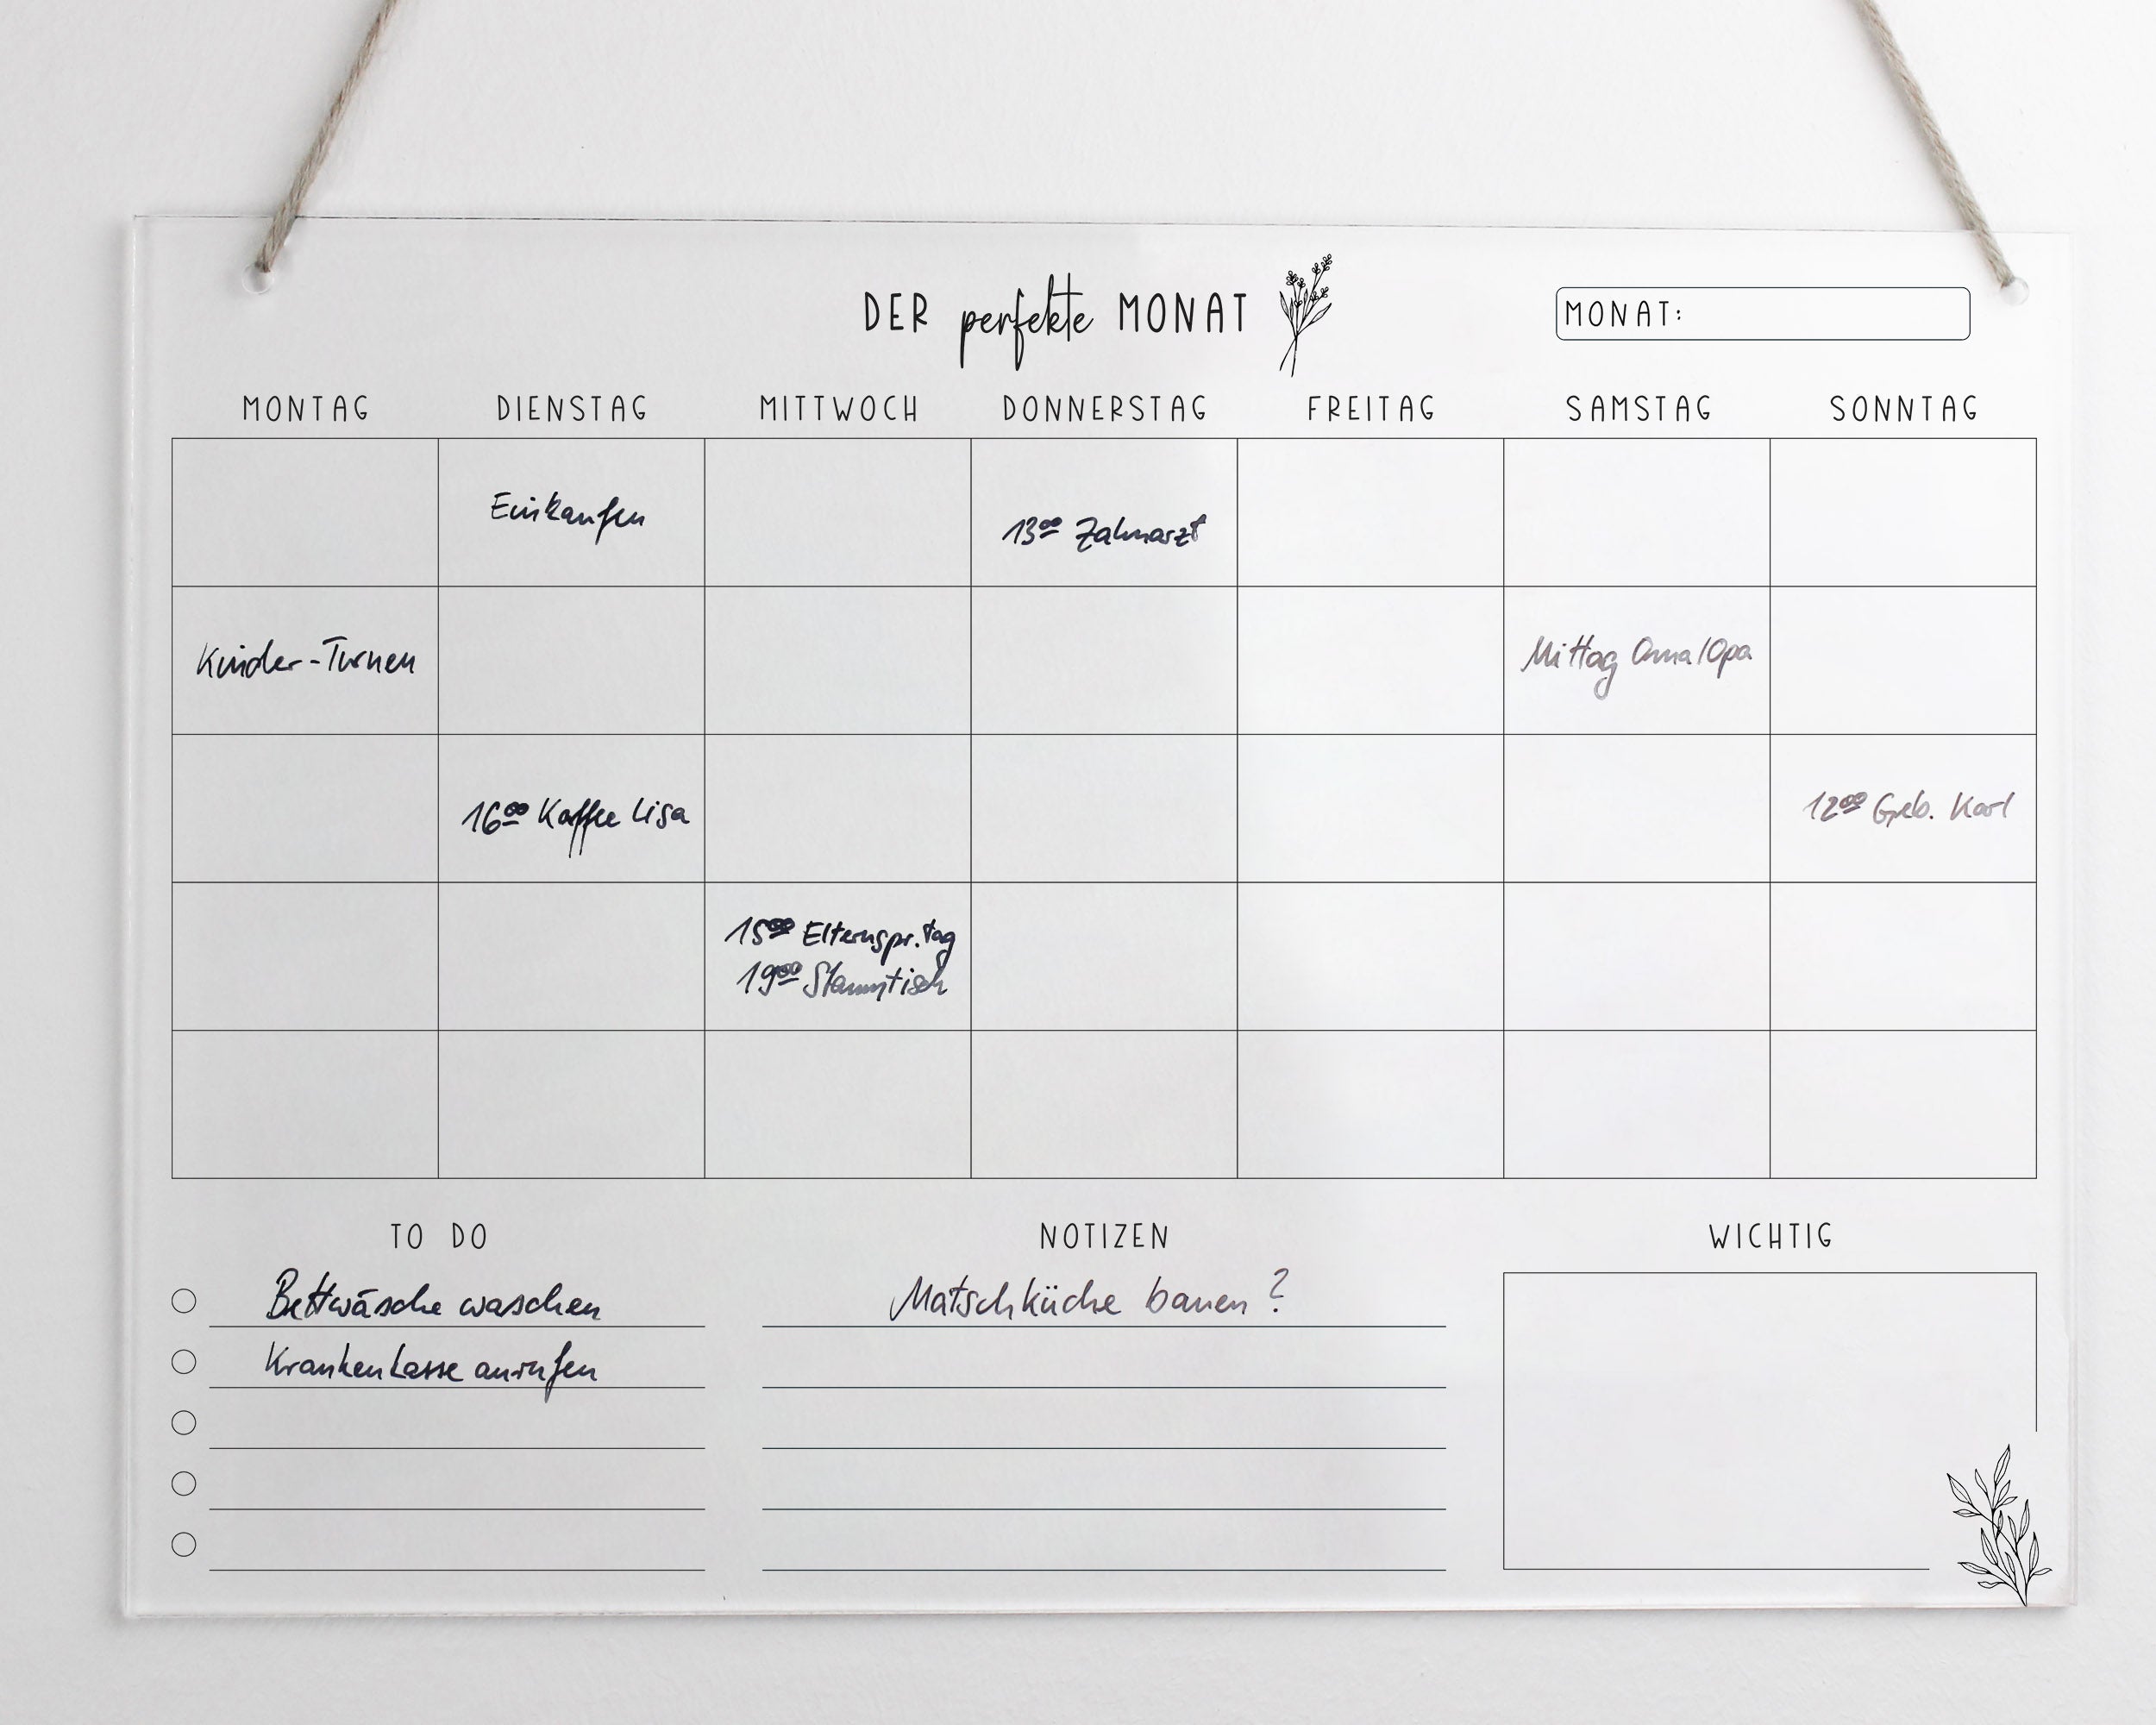 DER perfekte MONAT
MONAT:
MONTAG DIENSTAG MITTWOCH DONNERSTAG FREITAG SAMSTAG SONNTAG
Einkaufen
13⁰⁰ Zahnarzt
Kinder-Turnen
Mittag Oma/Opa
16⁰⁰ Kaffee Lisa
12⁰⁰ Geb. Karl
15⁰⁰ Elternspr.tag
19⁰⁰ Stammtisch
TO DO
Bettwäsche waschen
Krankenkasse anrufen
NOTIZEN
Matschküche bauen?
WICHTIG